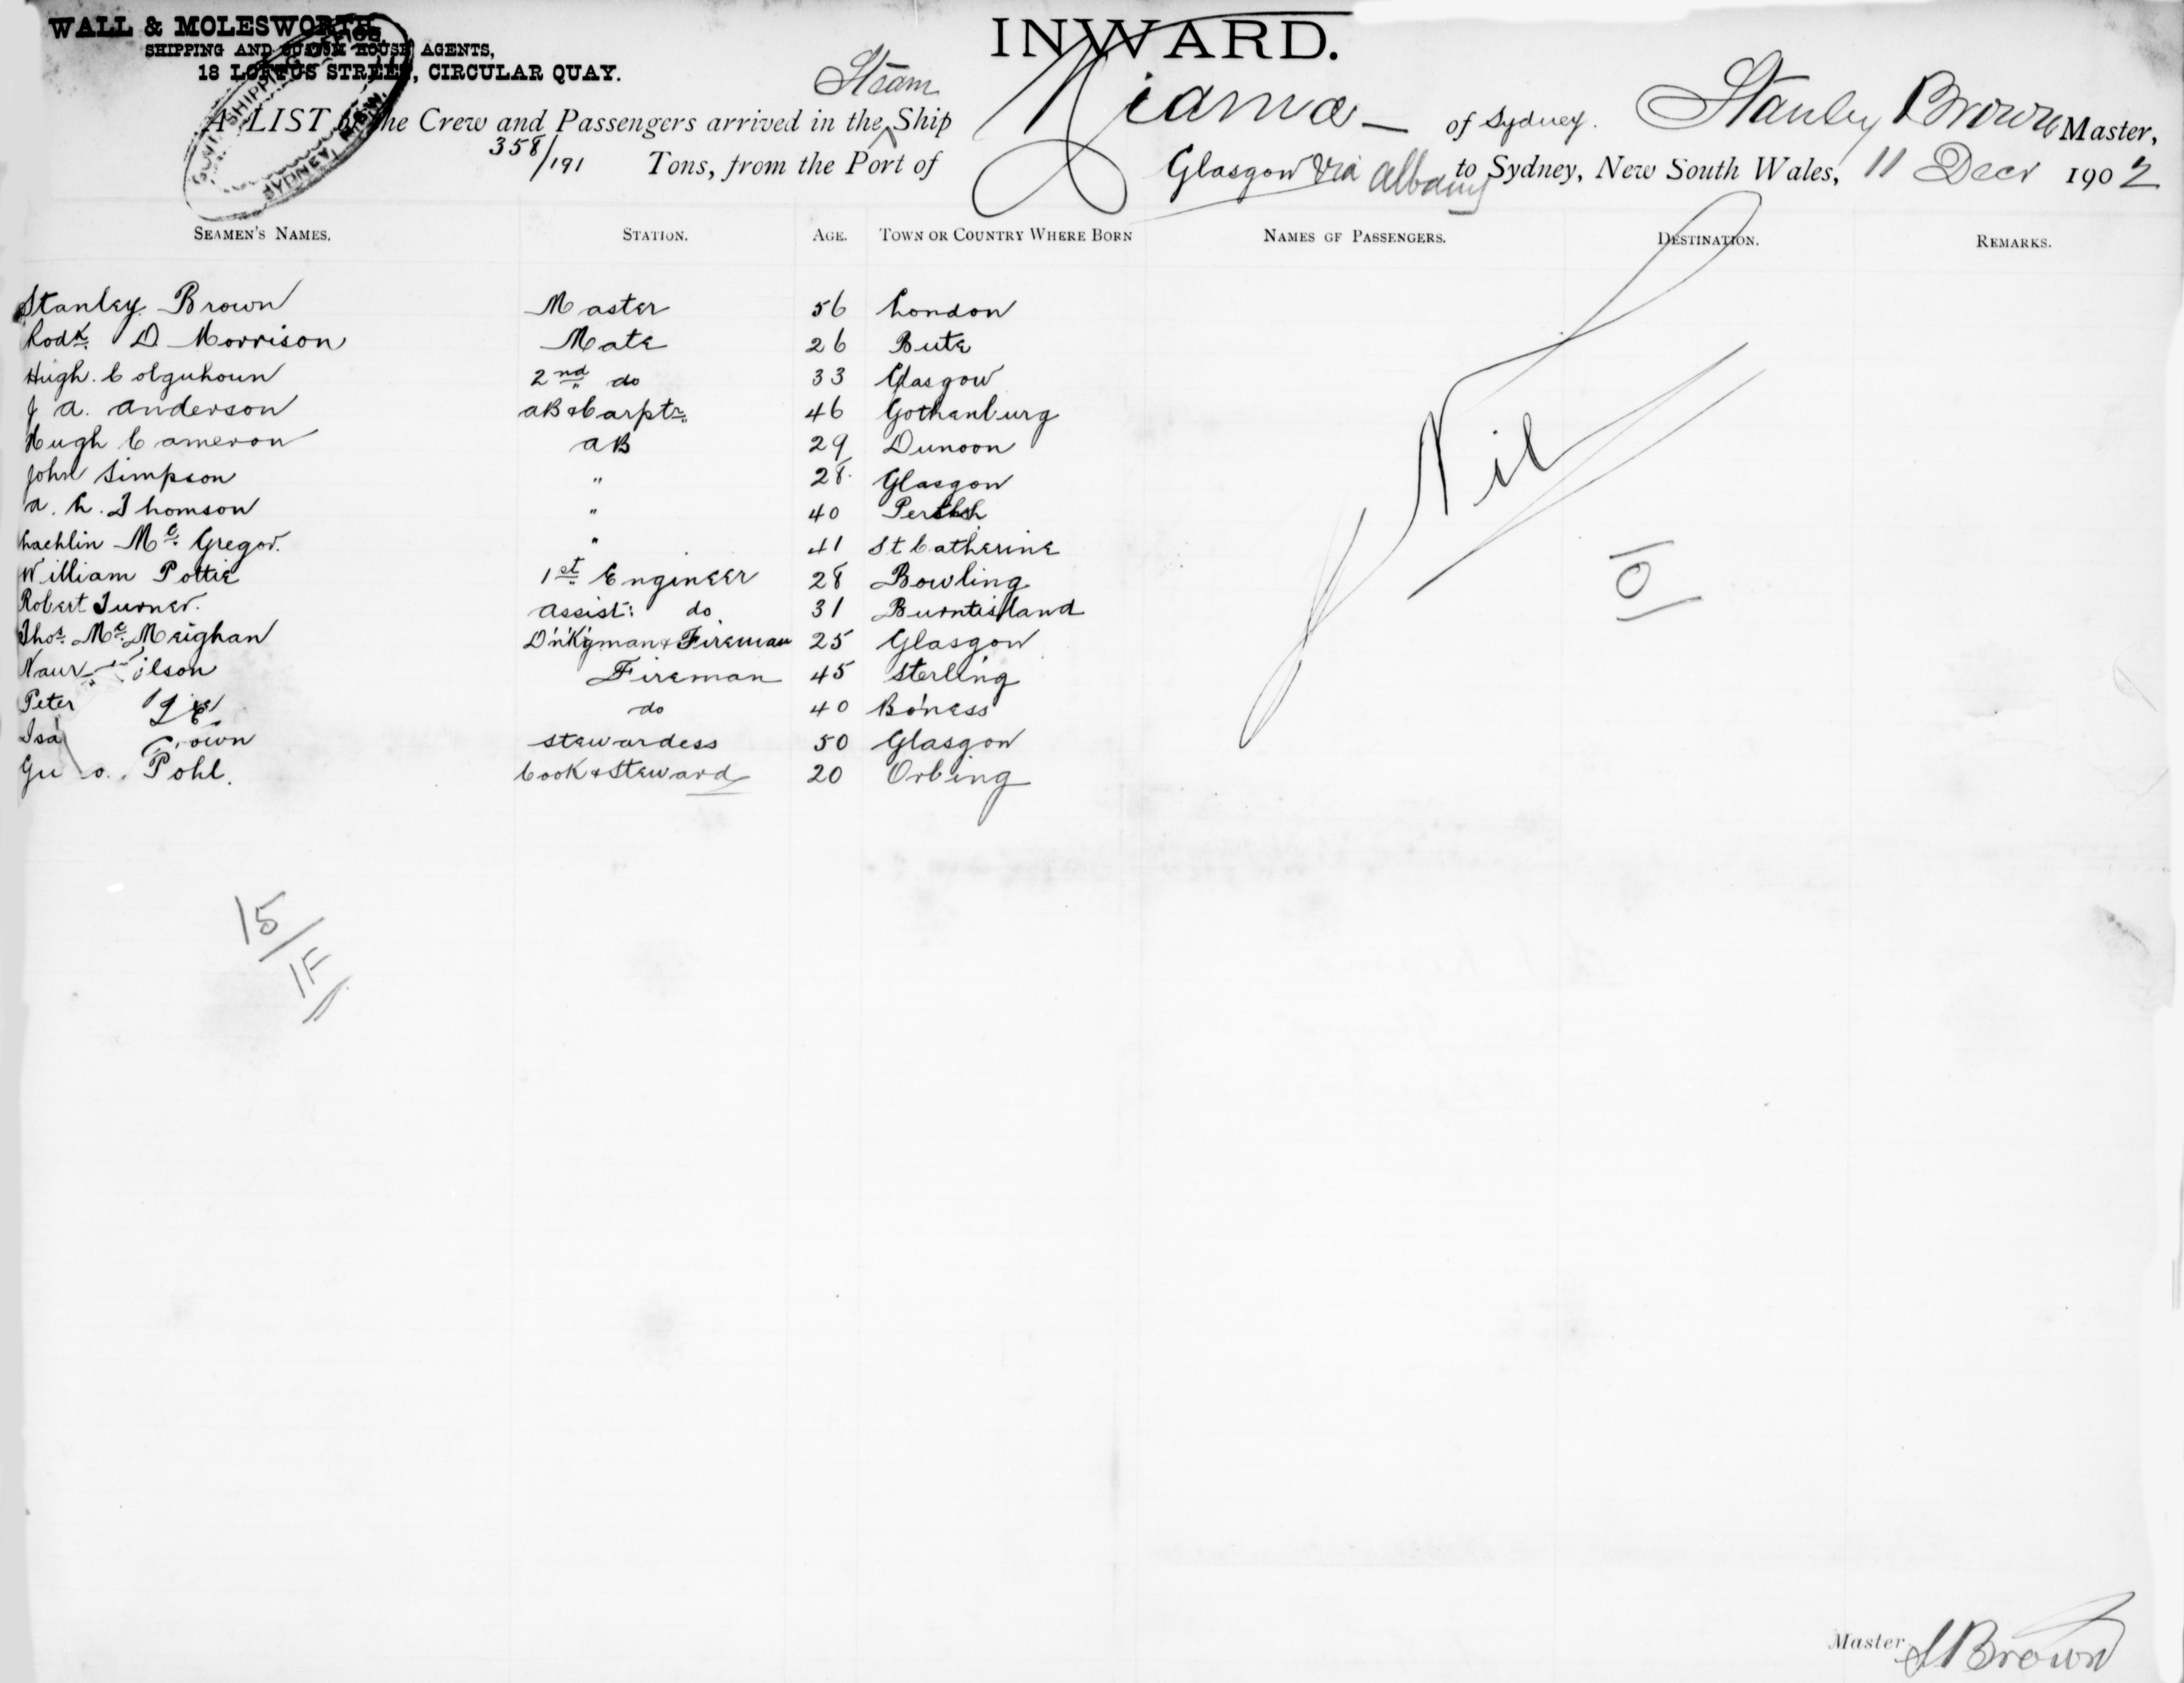 WALL & MOLESWORTH,
SHIPPING AND CUSTOM HOUSE AGENTS,
18 LOFTUS STREET, CIRCULAR QUAY.
INWARD.
A LIST of the Crew and Passengers arrived in the Steam Ship Kiama of Sydney. Stanley Brown Master,
358/191 Tons, from the Port of Glasgow via Albany to Sydney, New South Wales, 11 Decr 1902
SEAMEN'S NAMES. STATION. AGE. TOWN OR COUNTRY WHERE BORN NAMES OF PASSENGERS. DESTINATION. REMARKS.
Stanley Brown Master 56 London
Rodk. D Morrison Mate 26 Bute
Hugh. Colquhoun 2nd do 33 Glasgow
J A. Anderson AB & Carptr. 46 Gothenburg
Hugh Cameron AB 29 Dunoon
John Simpson " 28. Glasgow
A. L. Thomson " 40
Lachlin Mc. Gregor. " 41 St Catherine
William Pottie 1st Engineer 28 Bowling
Robert Turner. Assist: do 31 Burntisland
Thos. Mc. Meighan D'n'k'yman & Fireman 25 Glasgow
Fireman 45 Sterling
Peter do 40 Bo'ness
Stewardess 50 Glasgow
Pohl. Cook & Steward 20 Orbing
Nil
0
15
1F
Master S Brown